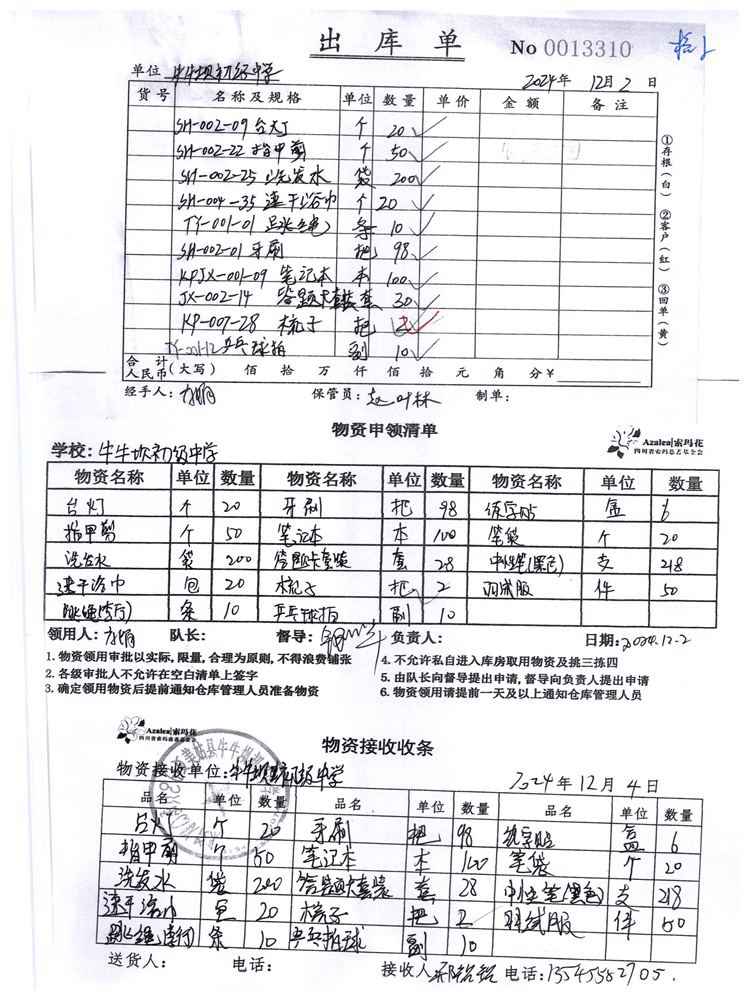 出库单 No 0013310
单位 牛牛坝初级中学 2024年 12月 2 日
货号 名称及规格 单位 数量 单价 金额 备注
SH-002-09 台灯 个 20
SH-002-22 指甲剪 个 50
SH-002-25 洗发水 袋 200
SH-004-35 速干浴巾 个 20
TY-001-01 跳绳 条 10
SH-002-01 牙刷 把 98
KPJX-001-09 笔记本 本 100
JX-002-14 答题卡套装 套 30
KP-007-28 梳子 把 2
乒乓球拍 副 10
合计人民币(大写) 佰 拾 万 仟 佰 拾 元 角 分 ¥
经手人: 保管员: 制单:
①存根(白) ②客户(红) ③回单(黄)
物资申领清单
Azalea|索玛花
四川省索玛慈善基金会
学校: 牛牛坝初级中学
物资名称 单位 数量 物资名称 单位 数量 物资名称 单位 数量
台灯 个 20 牙刷 把 98 练字帖 盒 6
指甲剪 个 50 笔记本 本 100 笔袋 个 20
洗发水 袋 200 答题卡套装 套 28 中性笔(黑色) 支 218
速干浴巾 包 20 梳子 把 2 羽绒服 件 50
跳绳 条 10 乒乓球拍 副 10
领用人: 队长: 督导: 负责人: 日期: 2024.12.2
1. 物资领用审批以实际,限量,合理为原则,不得浪费铺张 4. 不允许私自进入库房取用物资及挑三拣四
2. 各级审批人不允许在空白清单上签字 5. 由队长向督导提出申请,督导向负责人提出申请
3. 确定领用物资后提前通知仓库管理人员准备物资 6. 物资领用请提前一天及以上通知仓库管理人员
Azalea|索玛花
物资接收收条
物资接收单位: 牛牛坝初级中学 2024年 12月 4日
品名 单位 数量 品名 单位 数量 品名 单位 数量
台灯 个 20 牙刷 把 98 练字帖 盒 6
指甲剪 个 50 笔记本 本 100 笔袋 个 20
洗发水 袋 200 答题卡套装 套 28 中性笔(黑色) 支 218
速干浴巾 包 20 梳子 把 2 羽绒服 件 50
跳绳 条 10 乒乓拍球 副 10
送货人: 电话: 接收人 电话: 13545582705.